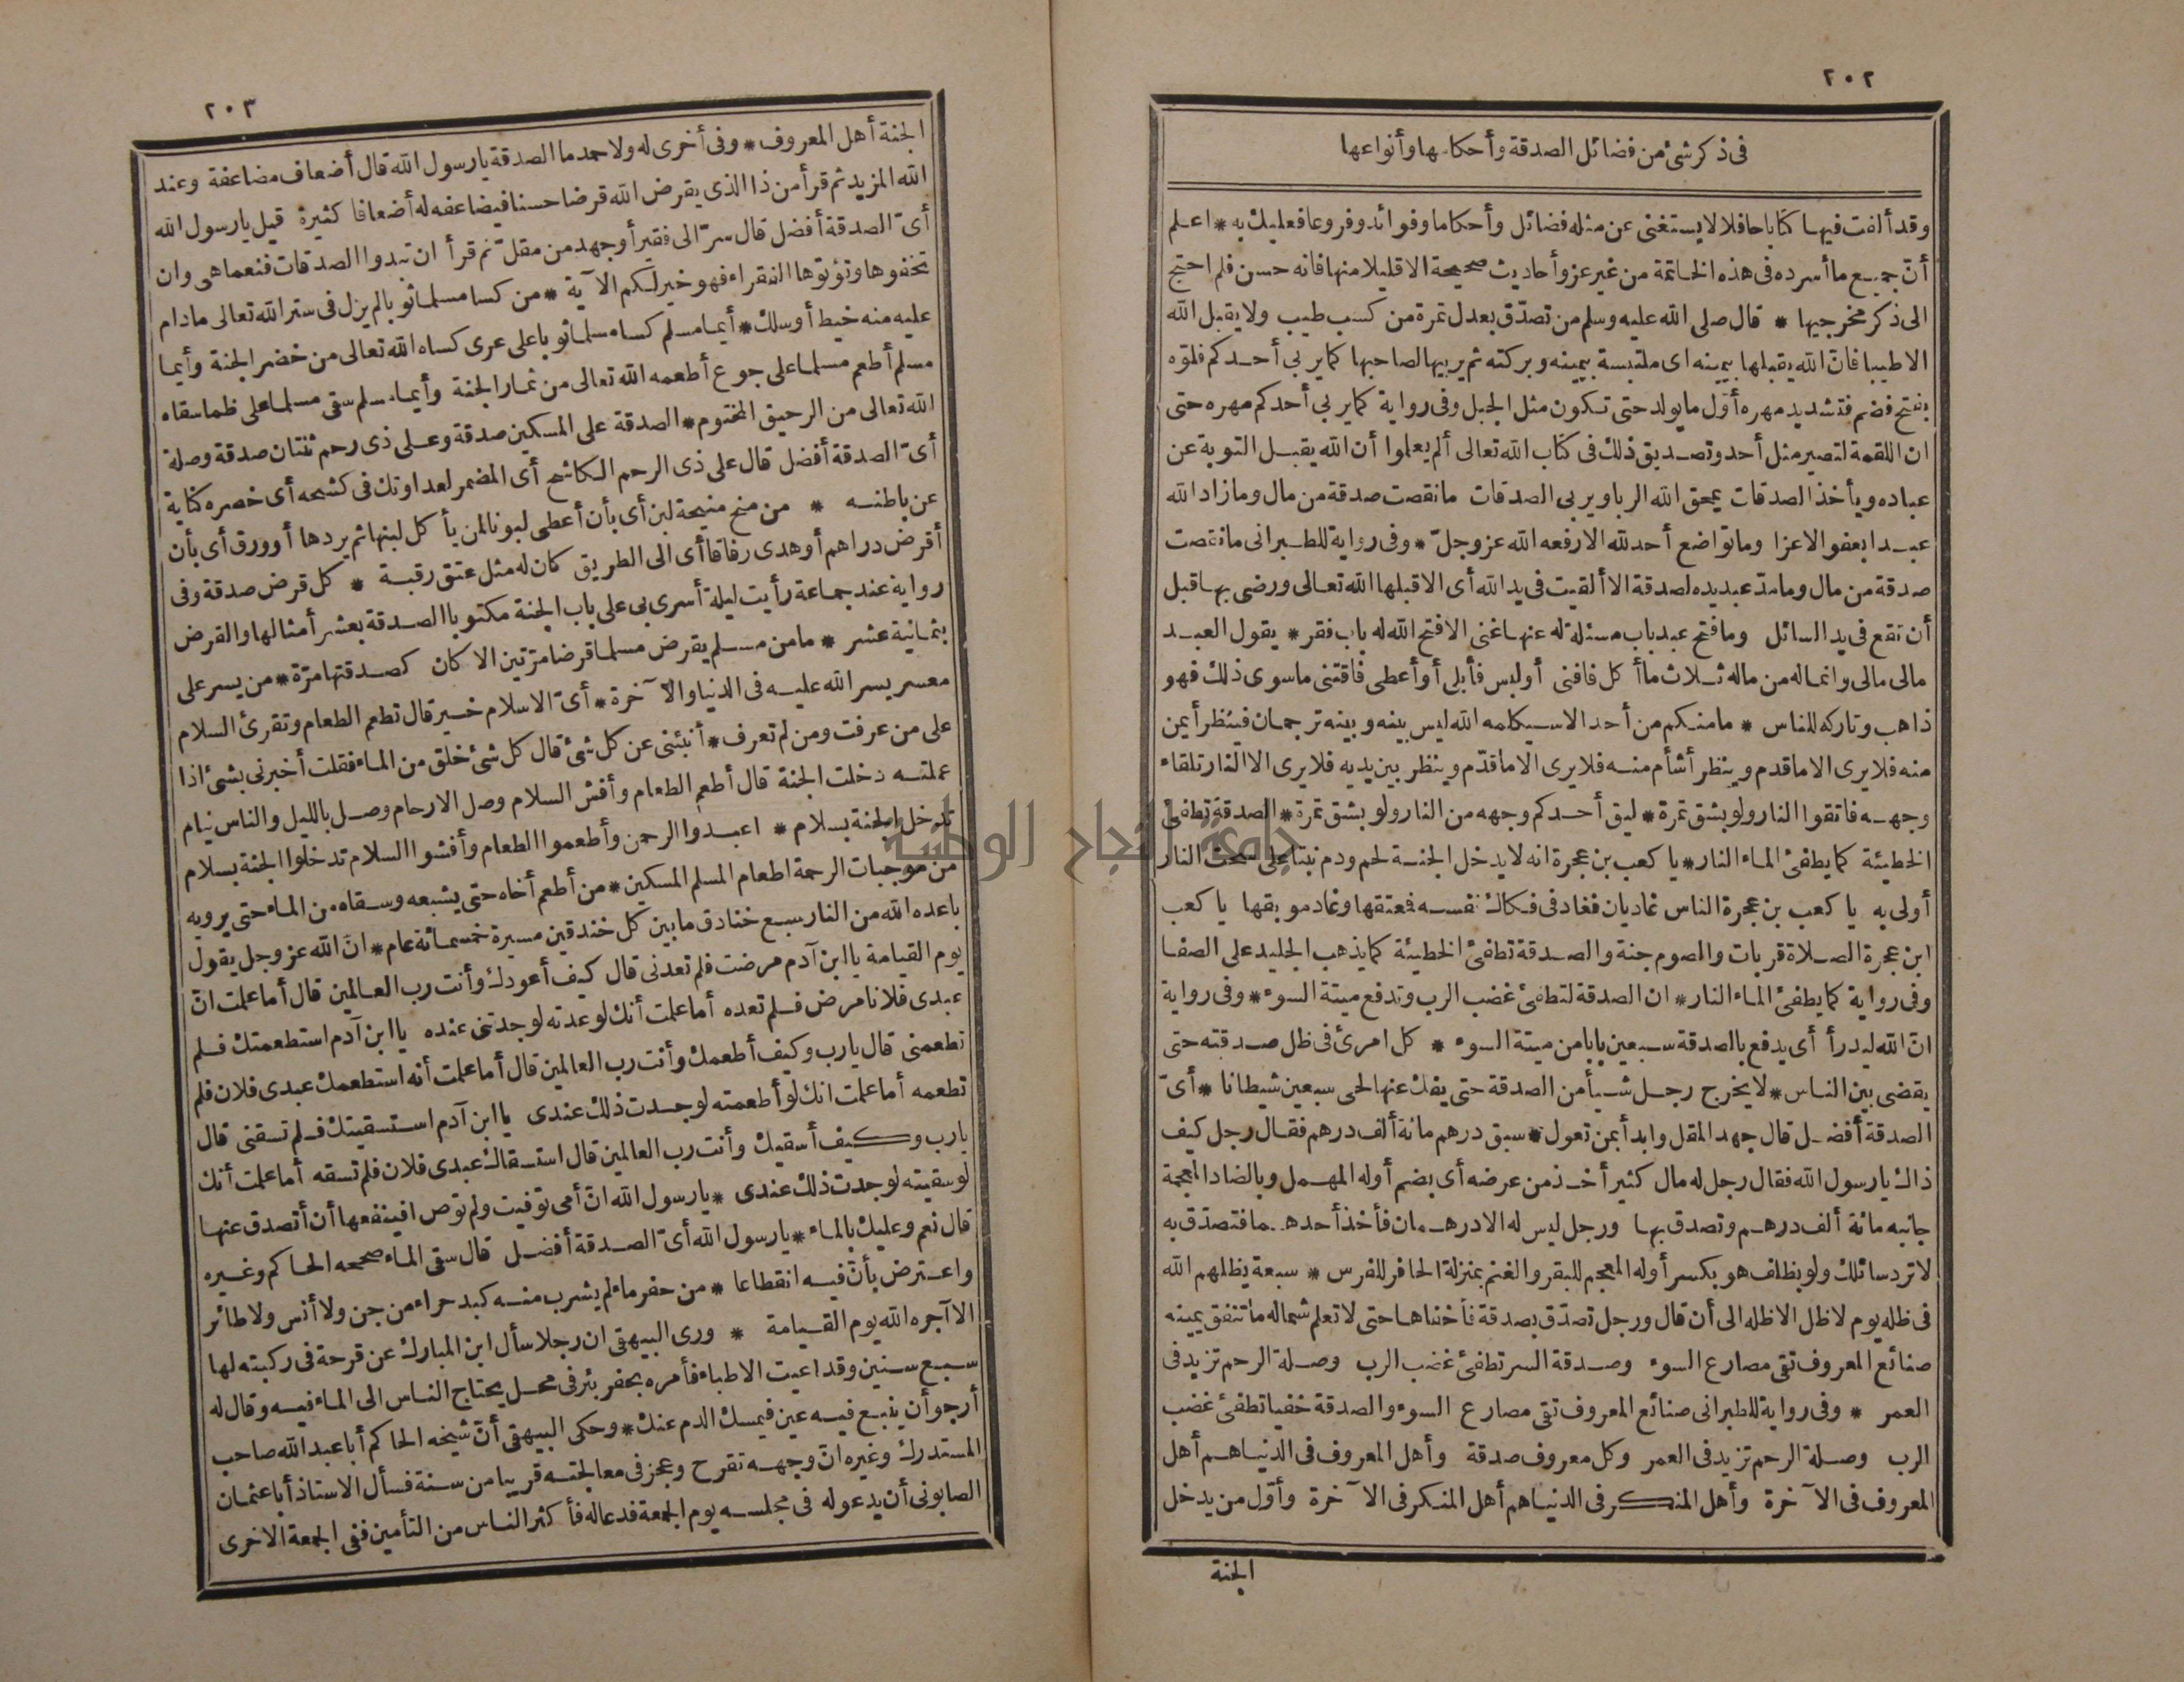 ٢٠٢
فى ذكر شئ من فضائل الصدقة وأحكامها وأنواعها
وقد ألفت فيها كتابا حافلا لا يستغنى عن مثله فضائل وأحكاما وفوائد وفروعا فعليك به * اعلم
أنّ جميع ما أسرده فى هذه الخاتمة من غير عزو أحاديث صحيحة الا قليلا منها فانه حسن فلم احتج
الى ذكر مخرجيها * قال صلى الله عليه وسلم من تصدّق بعدل تمرة من كسب طيب ولا يقبل الله
الا طيبا فانّ الله يقبلها بيمينه اى ملتبسة بيمينه وبركته ثم يربيها لصاحبها كما يربى أحدكم فلوّه
بفتح فضم فتشديد مهره أوّل ما يولد حتى تكون مثل الجبل وفى رواية كما يربى أحدكم مهره حتى
ان اللقمة لتصير مثل أحد وتصديق ذلك فى كتاب الله تعالى ألم يعلموا أن الله يقبل التوبة عن
عباده ويأخذ الصدقات يمحق الله الربا ويربى الصدقات ما نقصت صدقة من مال وما زاد الله
عبدا بعفو الا عزا وما تواضع أحد لله الا رفعه الله عز وجلّ * وفى رواية للطبرانى ما نقصت
صدقة من مال وما مدّ عبد يده لصدقة الا ألقيت فى يد الله أى الا قبلها الله تعالى ورضى بها قبل
أن تقع فى يد السائل وما فتح عبد باب مسئلة له عنها غنى الا فتح الله له باب فقر * يقول العبد
مالى مالى وانما له من ماله ثلاث ما أكل فافنى أو لبس فأبلى أو أعطى فاقتنى ما سوى ذلك فهو
ذاهب وتاركه للناس * ما منكم من أحد الا سيكلمه الله ليس بينه وبينه ترجمان فينظر أيمن
منه فلا يرى الا ما قدم وينظر أشأم منه فلا يرى الا ما قدّم وينظر بين يديه فلا يرى الا النار تلقاء
وجهه فاتقوا النار ولو بشق تمرة * ليق أحدكم وجهه من النار ولو بشق تمرة * الصدقة تطفئ
الخطيئة كما يطفئ الماء النار * يا كعب بن عجرة انه لا يدخل الجنة لحم ودم نبتا على سحت النار
أولى به يا كعب بن عجرة الناس غاديان فغاد فى فكاك نفسه فعتقها وغاد موبقها يا كعب
ابن عجرة الصلاة قربات والصوم جنة والصدقة تطفئ الخطيئة كما يذهب الجليد على الصفا
وفى رواية كما يطفئ الماء النار * ان الصدقة لتطفئ غضب الرب وتدفع ميتة السوء * وفى رواية
انّ الله ليدرأ أى يدفع بالصدقة سبعين بابا من ميتة السوء * كل امرئ فى ظل صدقته حتى
يقضى بين الناس * لا يخرج رجل شيأ من الصدقة حتى يفك عنها لحى سبعين شيطانا * أىّ
الصدقة أفضل قال جهد المقل وابدأ بمن تعول * سبق درهم مائة ألف درهم فقال رجل كيف
ذاك يا رسول الله فقال رجل له مال كثير أخذ من عرضه أى بضم أوله المهمل وبالضاد المعجمة
جانبه مائة ألف درهم وتصدق بها ورجل ليس له الا درهمان فأخذ أحدهما فتصدّق به
لا تردّ سائلك ولو بظلف هو بكسر أوله المعجم للبقر والغنم بمنزلة الحافر للفرس * سبعة يظلهم الله
فى ظله يوم لا ظل الا ظله الى أن قال ورجل تصدّق بصدقة فأخفاها حتى لا تعلم شماله ما تنفق يمينه
صنائع المعروف تقى مصارع السوء وصدقة السر تطفئ غضب الرب وصلة الرحم تزيد فى
العمر * وفى رواية للطبرانى صنائع المعروف تقى مصارع السوء والصدقة خفيا تطفئ غضب
الرب وصلة الرحم تزيد فى العمر وكل معروف صدقة وأهل المعروف فى الدنيا هم أهل
المعروف فى الآخرة وأهل المنكر فى الدنيا هم أهل المنكر فى الآخرة وأوّل من يدخل
الجنة
٢٠٣
الجنة أهل المعروف * وفى أخرى له ولاحمد ما الصدقة يا رسول الله قال أضعاف مضاعفة وعند
الله المزيد ثم قرأ من ذا الذى يقرض الله قرضا حسنا فيضاعفه له أضعافا كثيرة قيل يا رسول الله
أىّ الصدقة أفضل قال سرّ الى فقير أو جهد من مقلّ ثم قرأ ان تبدوا الصدقات فنعما هى وان
تخفوها وتؤتوها الفقراء فهو خير لكم الآية * من كسا مسلما ثوبا لم يزل فى ستر الله تعالى ما دام
عليه منه خيط أو سلك * أيما مسلم كسا مسلما ثوبا على عرى كساه الله تعالى من خضر الجنة وأيما
مسلم أطعم مسلما على جوع أطعمه الله تعالى من ثمار الجنة وأيما مسلم سقى مسلما على ظما سقاه
الله تعالى من الرحيق المختوم * الصدقة على المسكين صدقة وعلى ذى رحم ثنتان صدقة وصلة
أىّ الصدقة أفضل قال على ذى الرحم الكاشح أى المضمر لعداوتك فى كشحه أى خصره كناية
عن باطنه * من منح منيحة لبن أى بأن أعطى لبونا لمن يأكل لبنها ثم يردها أو ورق أى بأن
أقرض دراهم أو هدى رفاقا أى الى الطريق كان له مثل عتق رقبة * كل قرض صدقة وفى
رواية عند جماعة رأيت ليلة أسرى بى على باب الجنة مكتوبا الصدقة بعشر أمثالها والقرض
بثمانية عشر * ما من مسلم يقرض مسلما قرضا مرّتين الا كان كصدقتها مرّة * من يسر على
معسر يسر الله عليه فى الدنيا والآخرة * أىّ الاسلام خير قال تطعم الطعام وتقرئ السلام
على من عرفت ومن لم تعرف * أنبئنى عن كل شئ قال كل شئ خلق من الماء فقلت أخبرنى بشئ اذا
عملته دخلت الجنة قال أطعم الطعام وأفش السلام وصل الارحام وصل بالليل والناس نيام
تدخل الجنة بسلام * اعبدوا الرحمن وأطعموا الطعام وأفشوا السلام تدخلوا الجنة بسلام
من موجبات الرحمة اطعام المسلم المسكين * من أطعم أخاه حتى يشبعه وسقاه من الماء حتى يرويه
باعده الله من النار سبع خنادق ما بين كل خندقين مسيرة خمسمائة عام * انّ الله عز وجل يقول
يوم القيامة يا ابن آدم مرضت فلم تعدنى قال كيف أعودك وأنت رب العالمين قال أما علمت انّ
عبدى فلانا مرض فلم تعده أما علمت أنك لو عدته لوجدتنى عنده يا ابن آدم استطعمتك فلم
تطعمنى قال يا رب وكيف أطعمك وأنت رب العالمين قال أما علمت أنه استطعمك عبدى فلان فلم
تطعمه أما علمت انك لو أطعمته لوجدت ذلك عندى يا ابن آدم استسقيتك فلم تسقنى قال
يا رب وكيف أسقيك وأنت رب العالمين قال استسقاك عبدى فلان فلم تسقه أما علمت أنك
لو سقيته لوجدت ذلك عندى * يا رسول الله انّ أمى توفيت ولم توص افينفعها أن أتصدق عنها
قال نعم وعليك بالماء * يا رسول الله أىّ الصدقة أفضل قال سقى الماء صححه الحاكم وغيره
واعترض بأنّ فيه انقطاعا * من حفر ماء لم يشرب منه كبد حراء من جن ولا أنس ولا طائر
الا آجره الله يوم القيامة * وروى البيهقى ان رجلا سأل ابن المبارك عن قرحة فى ركبته لها
سبع سنين وقد اعيت الاطباء فأمره بحفر بئر فى محل يحتاج الناس الى الماء فيه وقال له
أرجو أن ينبع فيه عين فيمسك الدم عنك * وحكى البيهقى أنّ شيخه الحاكم أبا عبد الله صاحب
المستدرك وغيره انّ وجهه تقرح وعجز فى معالجته قريبا من سنة فسأل الاستاذ أبا عثمان
الصابونى أن يدعو له فى مجلسه يوم الجمعة فدعا له فأكثر الناس من التأمين ففى الجمعة الاخرى
جامعة النجاح الوطنية